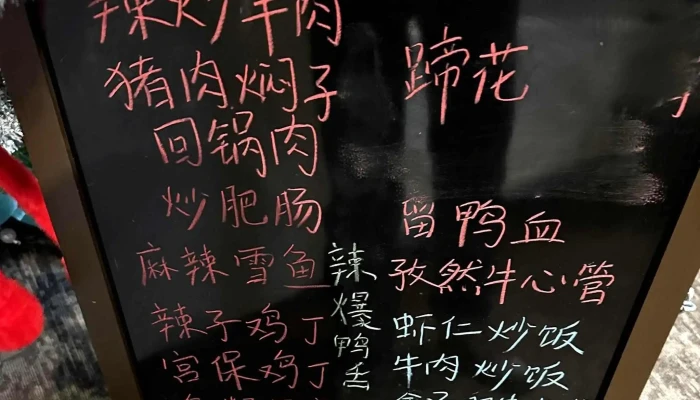 辣炒羊肉
猪肉焖子
回锅肉
炒肥肠
麻辣雪鱼
辣子鸡丁
宫保鸡丁
辣爆鸭舌
蹄花
留鸭血
孜然牛心管
虾仁炒饭
牛肉炒饭